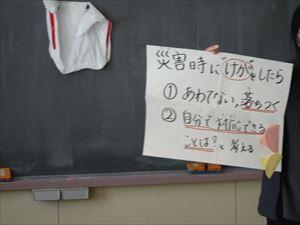 災害時にけがをしたら
① あわてない、落ちつく
② 自分で対応できる
ことは?と考える